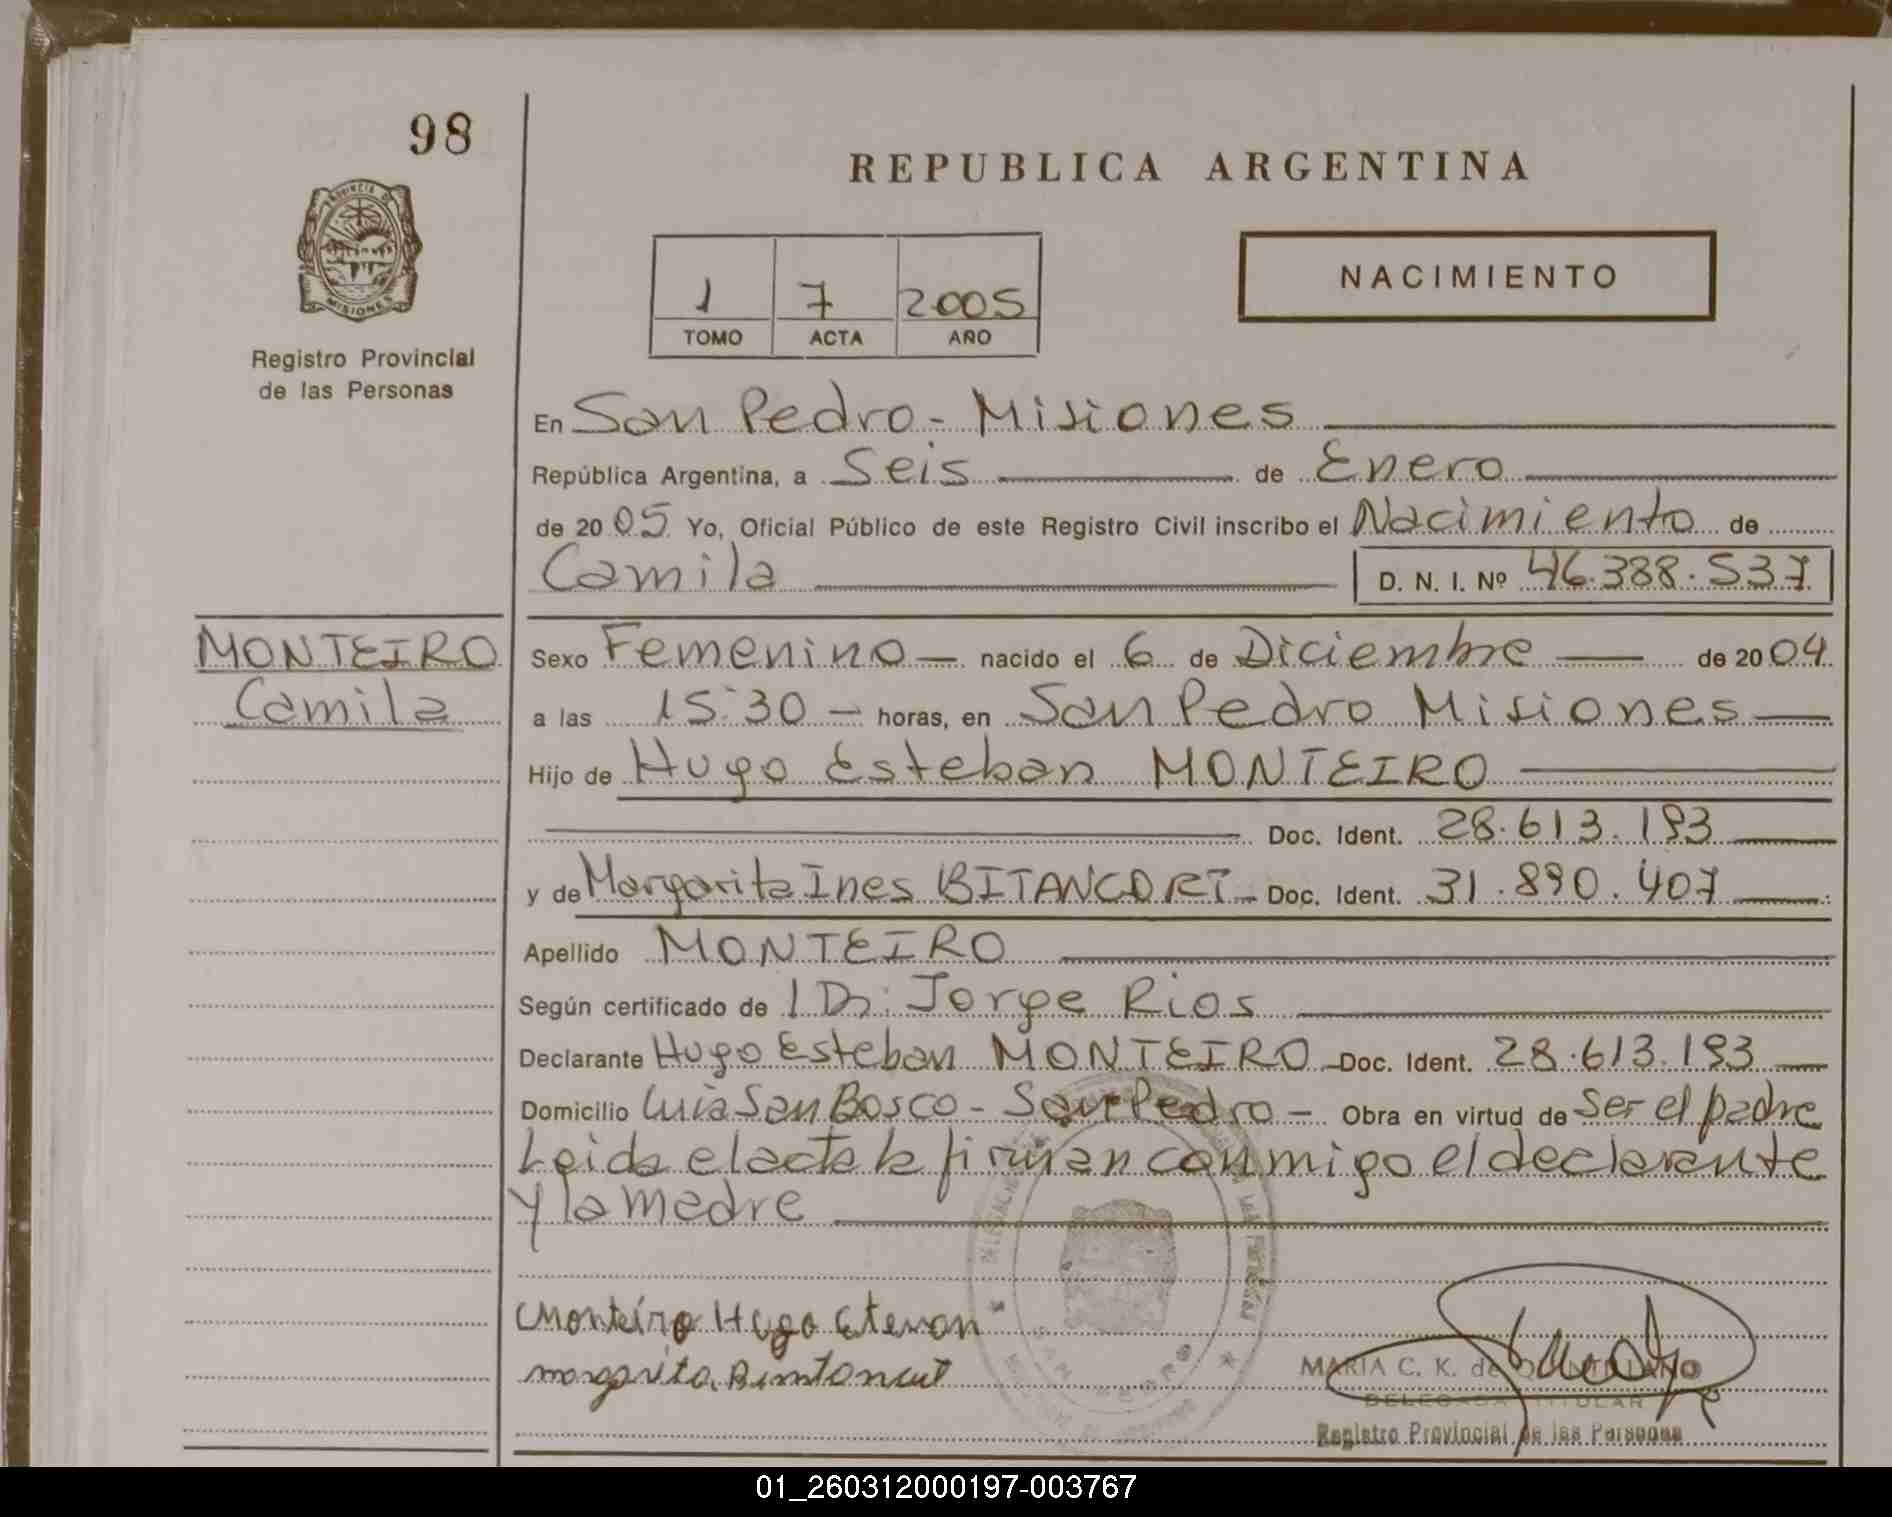 98
REPUBLICA ARGENTINA
PROVINCIA DE
MISIONES
Registro Provincial
de las Personas
1 7 2005
TOMO ACTA AÑO
NACIMIENTO
En San Pedro - Misiones
República Argentina, a Seis de Enero
de 2005 Yo, Oficial Público de este Registro Civil inscribo el Nacimiento de
Camila D. N. I. Nº 46.388.537
MONTEIRO
Camila
Sexo Femenino nacido el 6 de Diciembre de 2004
a las 15:30 horas, en San Pedro Misiones
Hijo de Hugo Esteban MONTEIRO
Doc. Ident. 28.613.193
y de Margarita Ines BITANCORT Doc. Ident. 31.890.407
Apellido MONTEIRO
Según certificado de Jorge Rios
Declarante Hugo Esteban MONTEIRO Doc. Ident. 28.613.193
Domicilio San Bosco - San Pedro - Obra en virtud de Ser el padre
Leida el acta la firman conmigo el declarante
y la madre
Monteiro Hugo Estevan
margarita
MARIA C. K. de
DELEGADA TITULAR
Registro Provincial de las Personas
SAN PEDRO
01_260312000197-003767